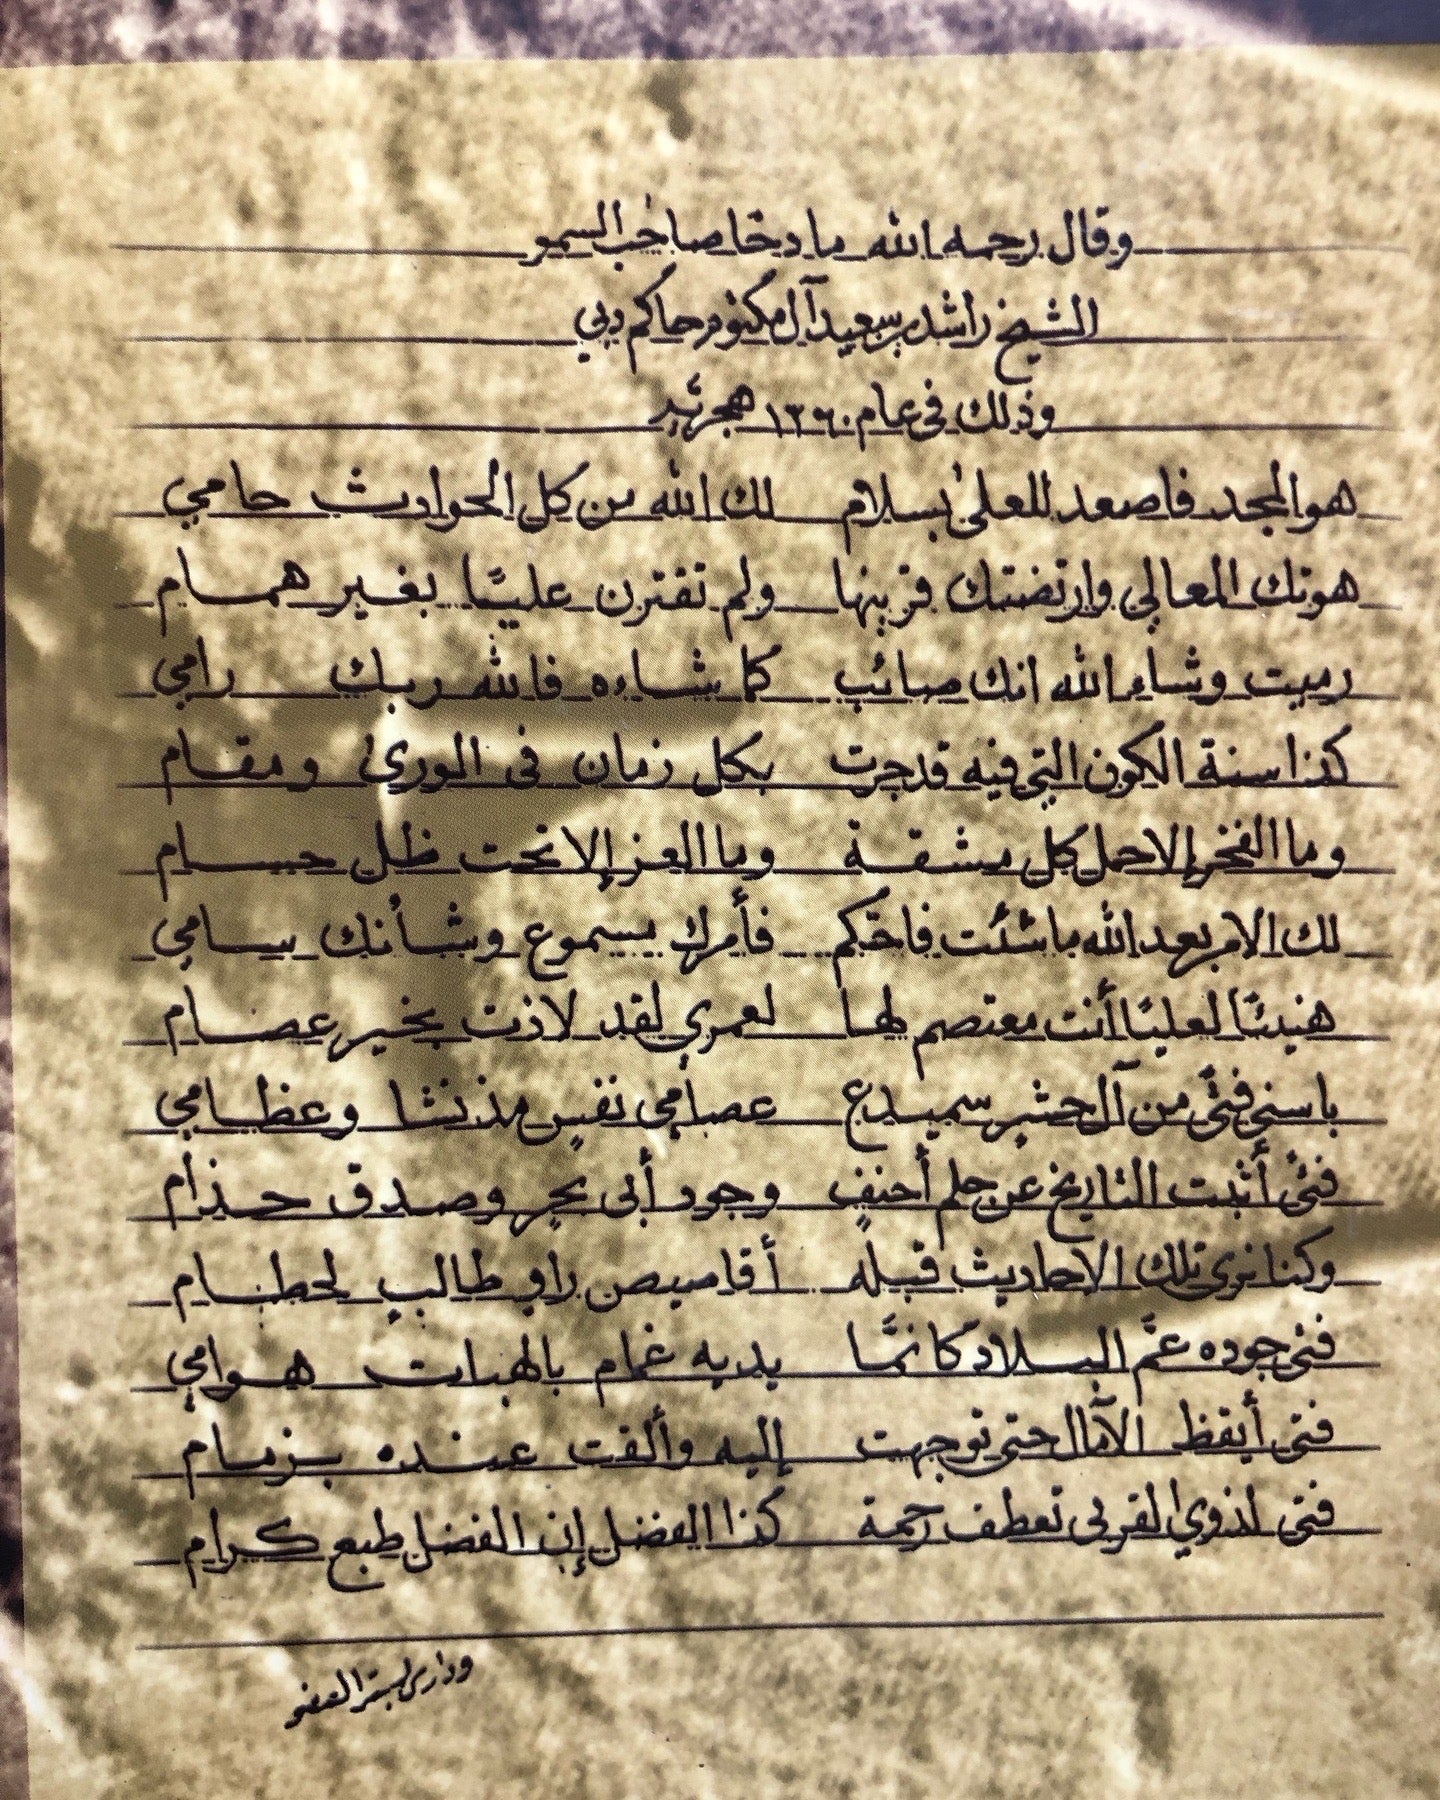 وقال رحمه الله مادحًا صاحب السمو
الشيخ راشد بن سعيد آل مكتوم حاكم دبي
وذلك في عام ١٣٦٠ هجرية
هو المجد فاصعد للعلىٰ بسلام لك الله من كل الحوادث حامي
هوتك المعالي وارتضتك قرينها ولم تقترن عليًا بغير همام
رميت وشاء الله انك صائب كما شاءه فالله ربك رامي
كذا سنة الكون التي فيه قد جرت بكل زمان في الورىٰ ومقام
وما الفخر إلا حمل كل مشقة وما العز إلا تحت ظل حسام
لك الامر بعد الله ما شئت فاحتكم فأمرك مسموع وشأنك سامي
هنيئًا لعليًا أنت معتصم لها لعمري لقد لاذت بخير عصام
بأسنى فتًى من آل حشرٍ سميدع عصامي نفسٍ مذ نشا وعظامي
فتًى أثبت التاريخ عن حلم أحنفٍ وجود أبي بحرٍ وصدق حذام
وكنا نرى تلك الاحاديث قبله أقاصيص راوٍ طالبٍ لحطام
فتى جوده عمَّ البلاد كانمَّا يديه غمام بالهبات هوامي
فتى أيقظ الآمال حتى توجهت إليه وألقت عنده بزمام
فتى لذوي القربى تعطف رحمة كذا الفضل إن الفضل طبع كرام